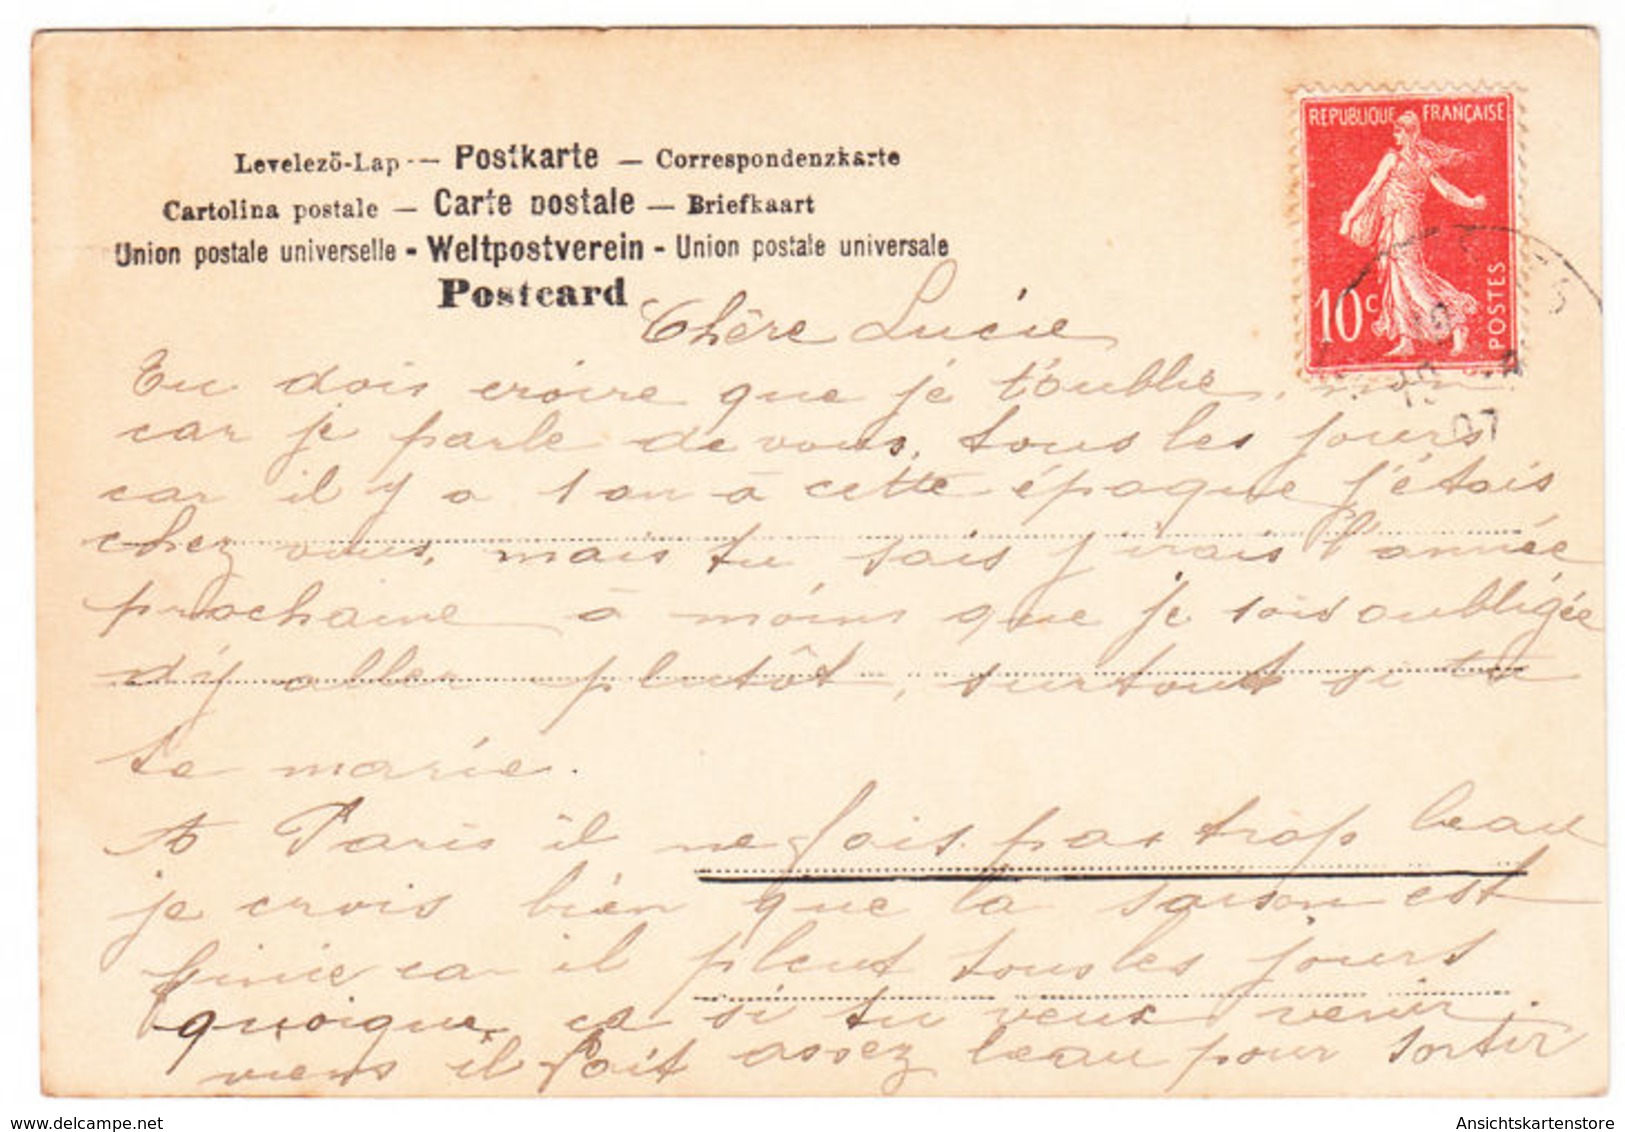 Levelező-Lap — Postkarte — Correspondenzkarte
Cartolina postale — Carte postale — Briefkaart
Union postale universelle - Weltpostverein - Union postale universale
Postcard
REPUBLIQUE FRANÇAISE
10c
POSTES
07
Chère Lucie
Tu dois croire que je t'oublie,
car je parle de vous, tous les jours
car il y a 1 an à cette époque j'étais
chez vous, mais tu sais j'irais l'année
prochaine à moins que je sois oubligée
d'y aller plutôt, surtout si tu
te marie.
A Paris il ne fais pas trop beau
je crois bien que la saison est
finie car il pleut tous les jours
quoique, ca si tu veux venir
viens il fait assez beau pour sortir
Ansichtskartenstore